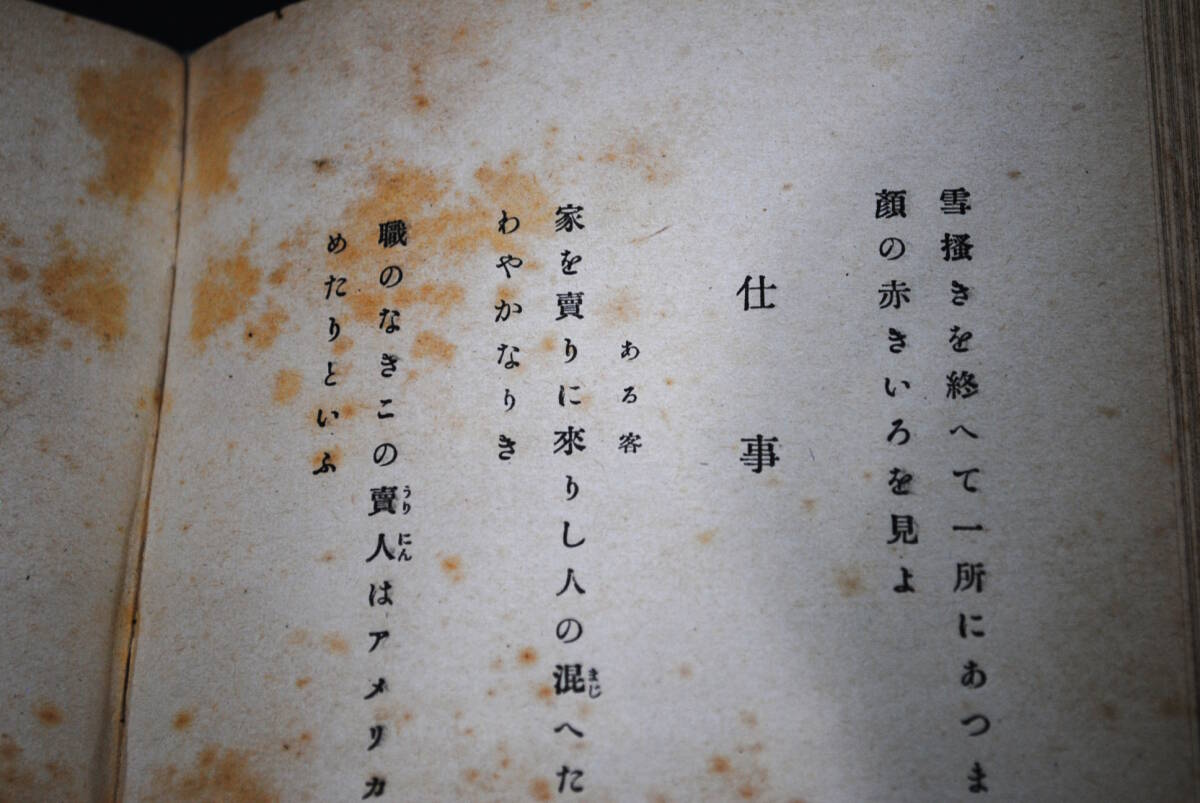 雪搔きを終へて一所にあつま
顔の赤きいろを見よ
仕事
ある客
家を賣りに來りし人の混へた
まじ
わやかなりき
職のなきこの賣人はアメリカ
うりにん
めたりといふ